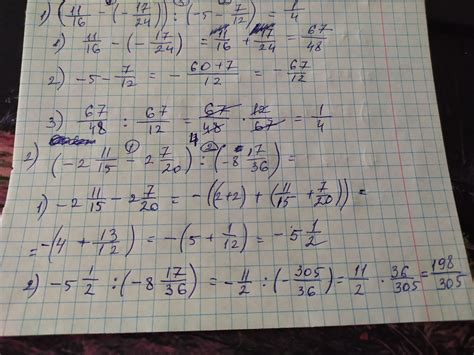 1) (11/16 - (- 17/24)) : (-5 - 7/12) = 1/4
1) 11/16 - (- 17/24) = 11/16 + 17/24 = 67/48
2) -5 - 7/12 = - 60+7/12 = - 67/12
3) 67/48 : 67/12 = 67/48 · 12/67 = 1/4
2) (-2 11/15 - 2 7/20) : (-8 17/36) =
1) -2 11/15 - 2 7/20 = -((2+2) + (11/15 + 7/20)) =
= -(4 + 13/12) = -(5 + 1/12) = -5 1/2
2) -5 1/2 : (-8 17/36) = - 11/2 : (- 305/36) = 11/2 · 36/305 = 198/305